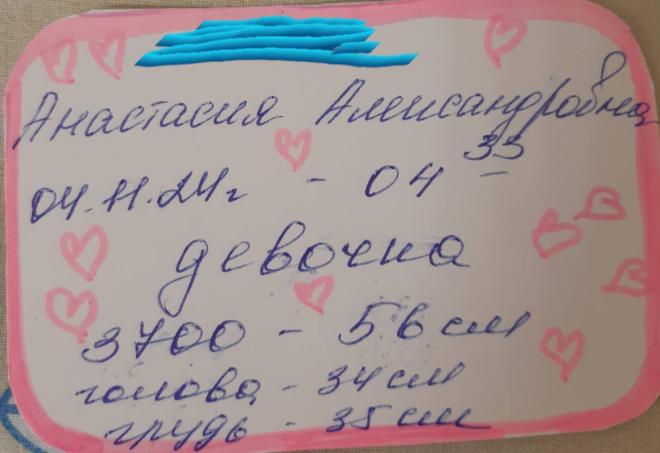 Анастасия Александровна
04.11.24г - 04 33
девочка
3700 - 56 см
голова - 34 см
грудь - 35 см